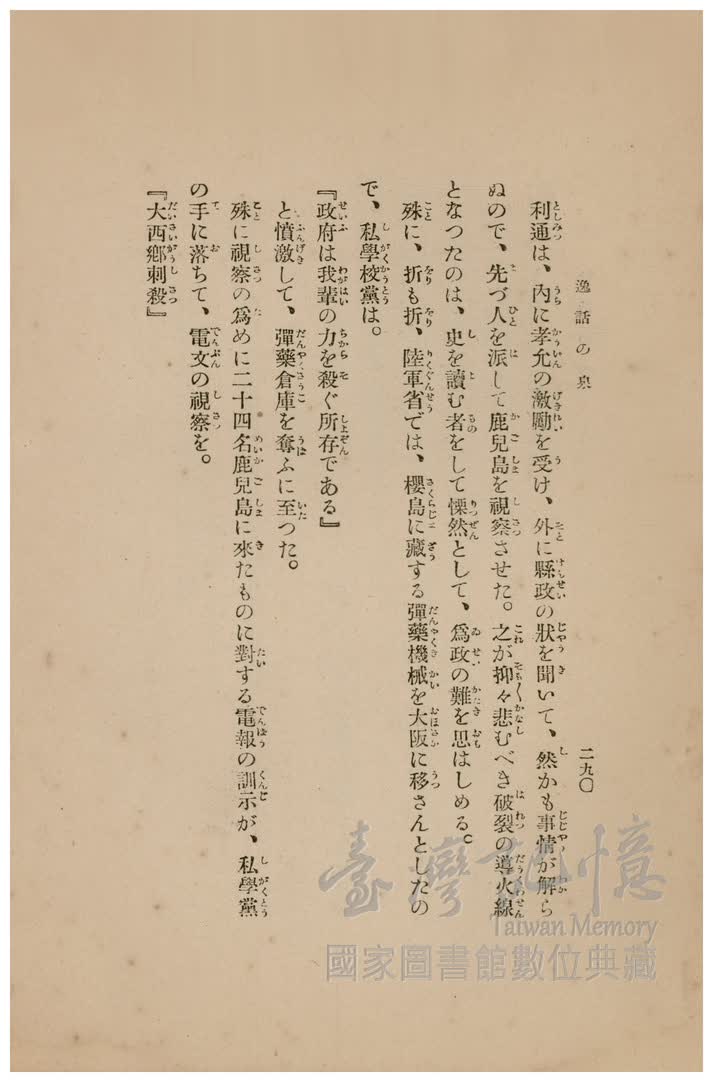 逸話の泉
二九〇
利通は、內に孝允の激勵を受け、外に縣政の狀を聞いて、然かも事情が解ら
ぬので、先づ人を派して鹿兒島を視察させた。之が抑々悲むべき破裂の導火線
となつたのは、史を讀む者をして慄然として、爲政の難を思はしめる。
殊に、折も折、陸軍省では、櫻島に藏する彈藥機械を大阪に移さんとしたの
で、私學校黨は。
『政府は我輩の力を殺ぐ所存である』
と憤激して、彈藥倉庫を奪ふに至つた。
殊に視察の爲めに二十四名鹿兒島に來たものに對する電報の訓示が、私學黨
の手に落ちて、電文の視察を。
『大西鄕刺殺』
臺灣記憶
Taiwan Memory
國家圖書館數位典藏